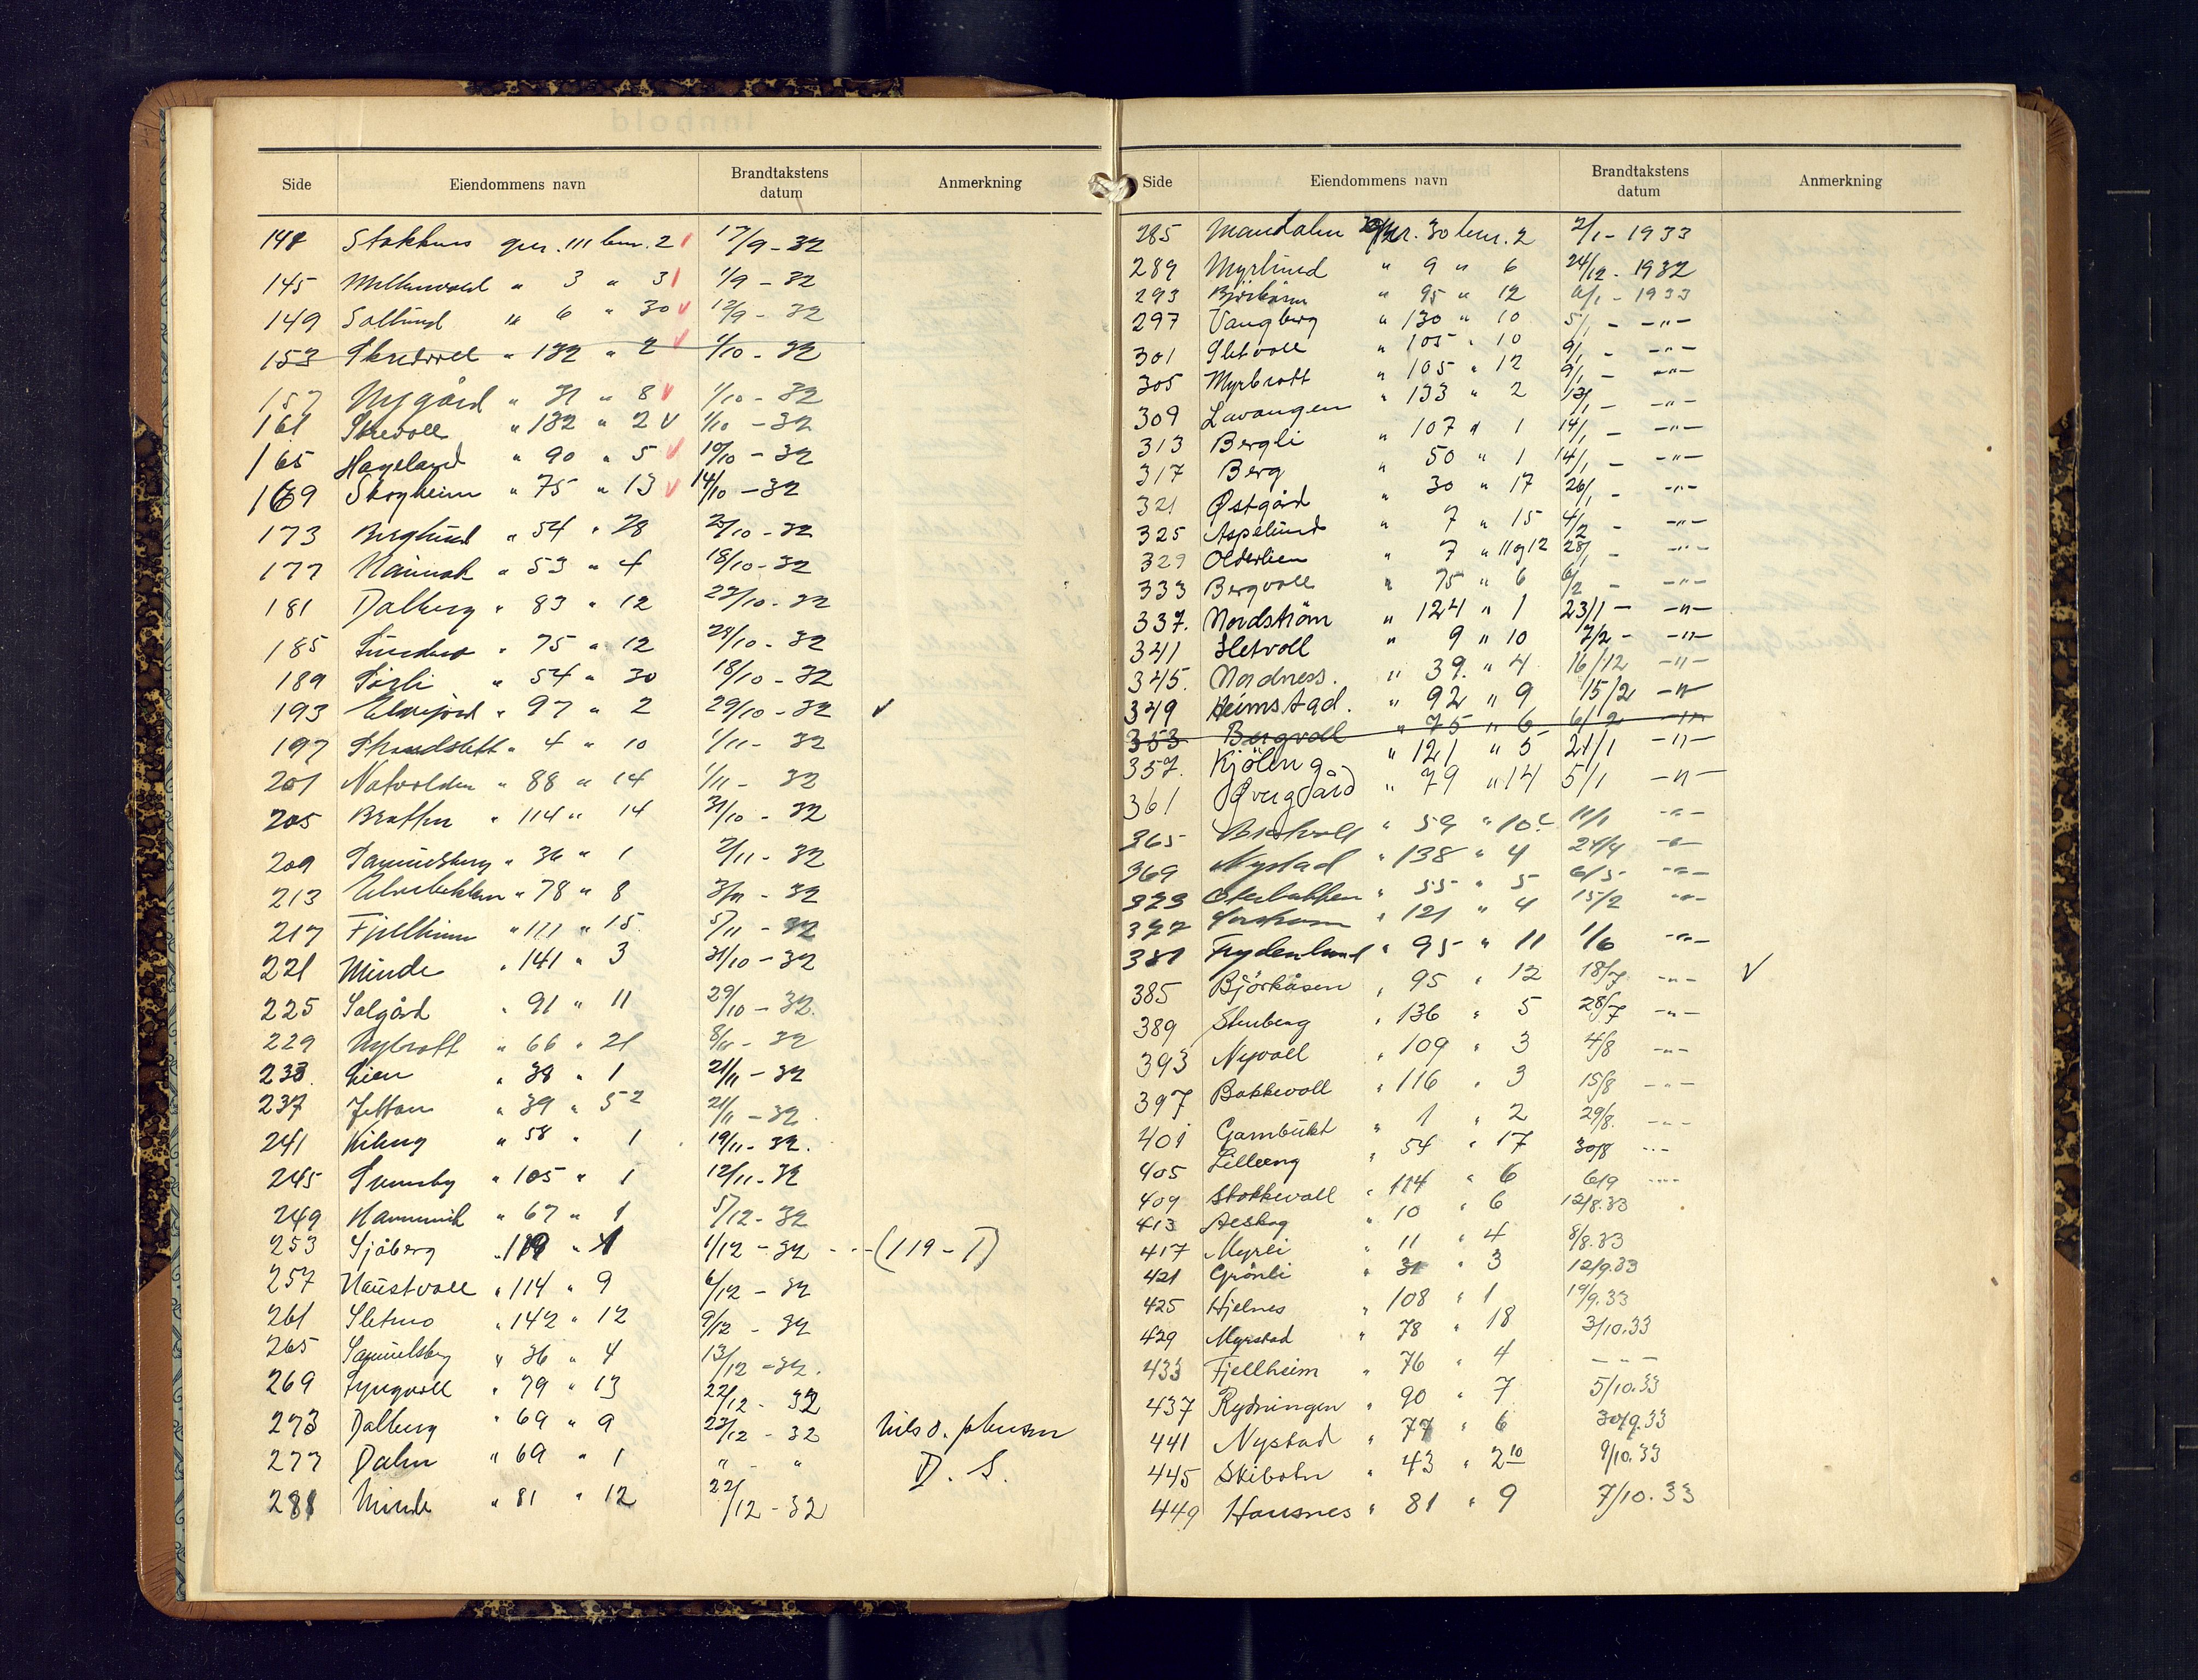 Side Eiendommens navn Brandtakstens datum Anmerkning
141 Stokknes gnr. 111 bnr. 2 17/9-32
145 3 " 31 1/9 - 32
149 Sollund " 6 " 30 v 12/9 - 32
153 " 132 " 2 v 1/10 - 32
157 Nygård " 31 " 8 v 1/10 - 32
161 Skrevoll " 132 " 2 v 1/10 - 32
165 Hageland " 90 " 5 v 10/10 - 32
169 Skogheim " 75 " 13 v 14/10 - 32
173 Berglund " 54 " 28 25/10 - 32
177 " 53 " 4 18/10 - 32
181 Dalberg " 83 " 12 22/10 - 32
185 " 75 " 12 28/10 - 32
189 Sörli " 54 " 30 18/10 - 32
193 Elvejord " 97 " 2 29/10 - 32 v
197 " 4 " 10 1/11 - 32
201 Natvolden " 88 " 14 1/11 - 32
205 Bratten " 114 " 14 31/10 - 32
209 Samuelsberg " 36 " 1 2/11 - 32
213 Elvebakken " 78 " 8 3/11 - 32
217 Fjellheim " 111 " 15 5/11 - 32
221 Minde " 141 " 3 31/10 - 32
225 Solgård " 91 " 11 29/10 - 32.
229 Nybrott " 66 " 21 8/11 - 32
233. Lien " 38 " 1 21/11 - 32
237 Jettan " 39 " 52 21/11 - 32
241 Kileng " 58 " 1 19/11 - 32.
245 Svensby " 105 " 1 12/11 - 32
249 " 67 " 1 5/12 - 32
253 Sjöberg " 119 " 1 1/12 - 32 - - - (119 - 1)
257 Naustvoll " 114 " 9 6/12 - 32
261 Sletmo " 142 " 12 9/12 - 32
265 Samuelsberg " 36 " 4 13/12 - 32.
269 Lyngvoll " 79 " 13 22/12 - 32
273 Dalberg " 69 " 9 22/12 - 32 Nils O. Johnsen
277 Dalen " 69 " 1 " - " D. S.
281 Minde " 81 " 12 22/12 - 32
Side Eiendommens navn Brandtakstens datum Anmerkning
285 Mandalen gnr. 30 bnr. 2 2/1 - 1933
289 Myrlund " 9 " 6 24/12 - 1932
293 Björkåsen " 95 " 12 6/1 - 1933
297 Vangberg " 130 " 10 5/1 - -"-
301 Sletvoll " 105 " 10 9/1 - -"-
305 Myrbrott " 105 " 12 9/1 - -"-
309 Lavangen " 133 " 2 13/1 - -"-
313 Bergli " 107 " 1 14/1 - -"-
317 Berg " 50 " 1 14/1 - -"-
321 Østgård " 30 " 17 26/1 - -"-
325 Aspelund " 7 " 15 4/2 - -"-
329 Olderlien " 7 " 11 og 12 28/1 - -"-
333 Bergvoll " 75 " 6 6/2 - -"-
337. Nordström " 124 " 1 23/1 - -"-
341 Sletvoll " 9 " 10 7/2 - -"-
345. Nordness. " 39. " 4 16/12 -"-
349 Heimstad. " 92 " 9 15/2 -"-
353 Bergvoll " 75 " 6 6/2 -"-
357. Kjöleng " 121 " 5 21/1 -"-
361 Øvergård " 79 " 14 5/1 -"-
365 " 59 " 10 11/1 -"-
369 Nystad " 138 " 4 24/4 -"-
373 " 55 " 5 6/5 -"-
377 " 121 " 4 15/2 -"-
381 Frydenlund " 95 " 11 1/6 -"-
385 Björkåsen " 95 " 12 18/7 -"- v
389 Stenberg " 136 " 5 28/7 -"-
393 Nyvoll " 109 " 3 4/8 -"-
397 Bakkevoll " 116 " 3 15/8 -"-
401 Gambukt " 1 " 2 29/8. -"-
405 Lilleeng " 54 " 17 30/8 -"-
409 Stokkevoll " 114 " 6 6/9 -"-
413 " 10 " 6 12/8.33
417 Myrli " 11 " 4 8/8.33
421 Grönli " 31 " 3 12/9.33
425 Hjelnes " 108 " 1 19/9.33
429 Myrstad " 78 " 18 3/10.33
433 Fjellheim " 76 " 4 - " -
437 Rydningen " 90 " 7 5/10.33
441 Nystad " 77 " 6 30/9.33
445 Skibotn " 43 " 210 9/10.33
449 Hansnes " 81 " 9 7/10.33